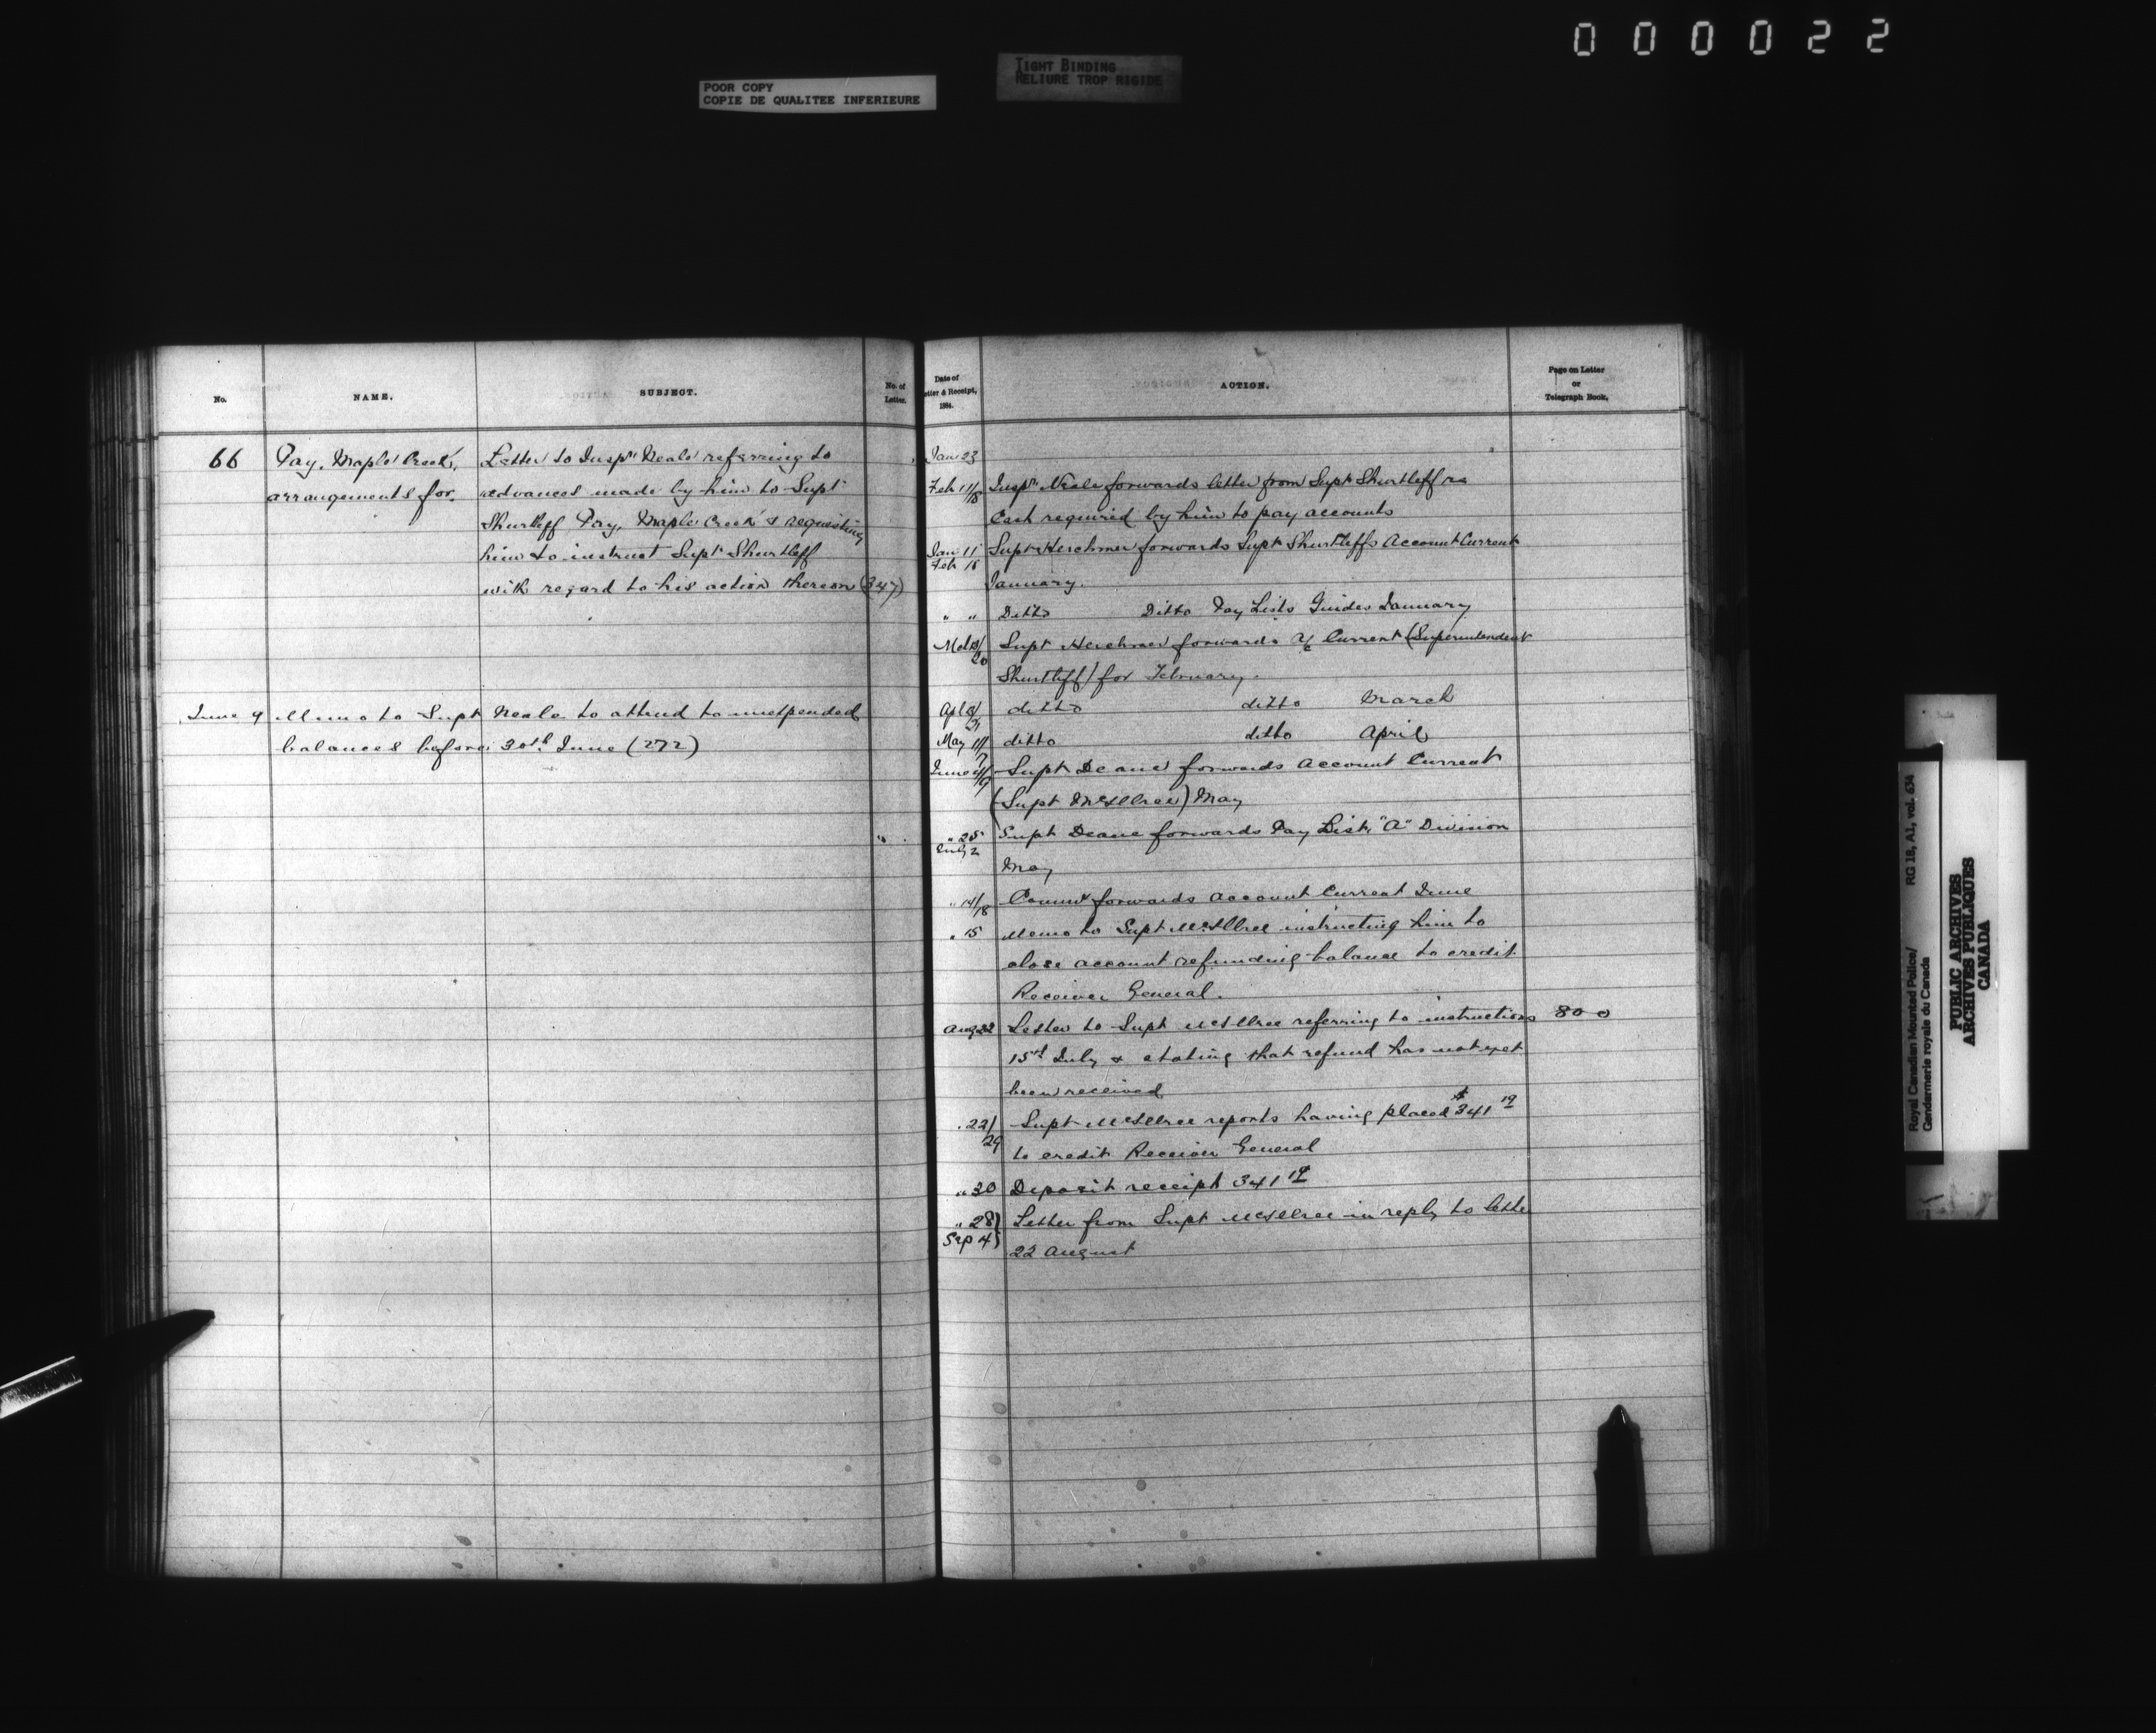 000022
POOR COPY
COPIE DE QUALITEE INFERIEURE
TIGHT BINDING
RELIURE TROP RIGIDE
No.
NAME.
SUBJECT.
No. of
Letter.
66
Pay, Maple Creek,
arrangements for.
Letter to Inspr Neale referring to
advances made by him to Supt
Shurtleff Pay, Maple Creek & requesting
him to instruct Supt Shurtleff
with regard to his action thereon (347)
June 9 Memo to Supt Neale to attend to unexpended
balances before 30th June (272)
Date of
etter & Receipt,
1884.
ACTION.
Page on Letter
or
Telegraph Book.
Jan 23
Feb 11/18 Inspr Neale forwards letter from Supt Shurtleff re
Cash required by him to pay accounts
Jan 11
Feb 18
Supt Herchmer forwards Supt Shurtleffs Account Current
January.
" " Ditto Ditto Pay Lists Guides January
Mch 20 Supt Herchmer forwards a/c Current (Superintendent
Shurtleff) for February.
Apl ditto ditto March
May 11/ ditto ditto April
June Supt Deane forwards Account Current
(Supt McIllree) May
" 25
July 2
Supt Deane forwards Pay List, "A" Division
May
" 14/18 Commr forwards Account Current June
" 15 Memo to Supt McIllree instructing him to
close account refunding balance to credit
Receiver General.
Aug 22 Letter to Supt McIllree referring to instructions 800
15th July & stating that refund has not yet
been received
" 22/29 Supt McIllree reports having placed $341 19
to credit Receiver General
" 30 Deposit receipt 341 19
" 28)
Sep 4)
Letter from Supt McIllree in reply to letter
22 August
Royal Canadian Mounted Police/
Gendarmerie royale du Canada
RG 18, A1, vol. 634
PUBLIC ARCHIVES
ARCHIVES PUBLIQUES
CANADA